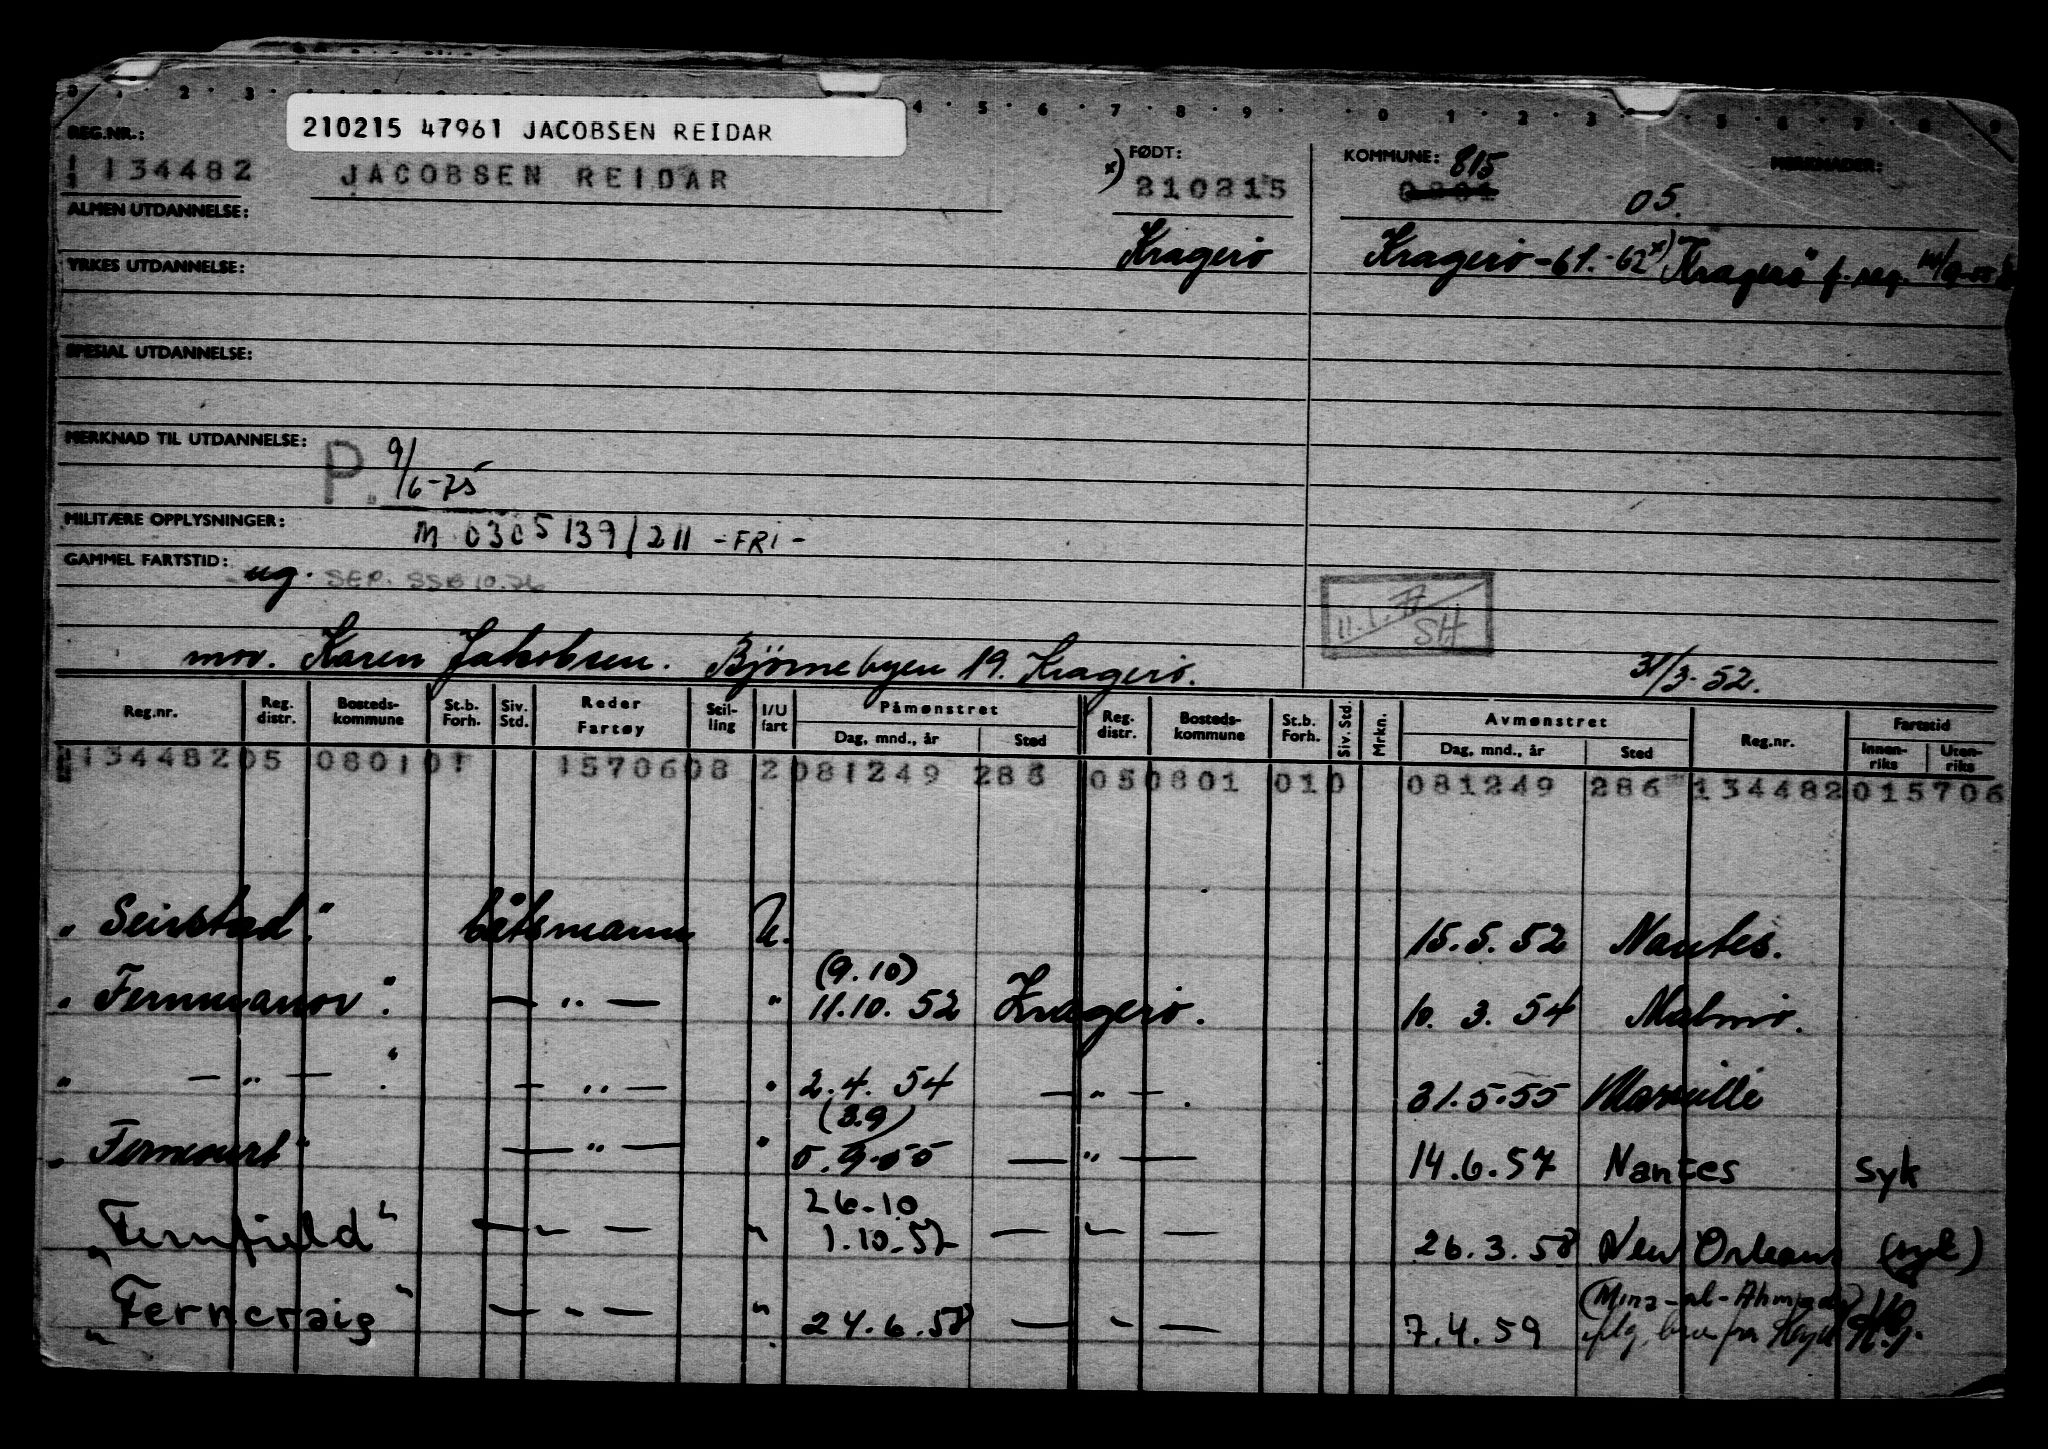 210215 47961 JACOBSEN REIDAR
REG.NR.:
134482 JACOBSEN REIDAR
x) FØDT:
210215
KOMMUNE: 815
0801
05.
MERKNADER:
ALMEN UTDANNELSE:
Kragerø
Kragerø - 61. - 62 x) Kragerø f. reg.
YRKES UTDANNELSE:
SPESIAL UTDANNELSE:
MERKNAD TIL UTDANNELSE:
P. 9/6-75
MILITÆRE OPPLYSNINGER: M 0305139/211 - FRI -
GAMMEL FARTSTID: ug.
11.1.77
SH
mor. Karen Jakobsen. Bjørnebyen 19. Kragerø.
31/3-52.
Reg.nr. Reg. distr. Bosteds-kommune St.b. Forh. Siv. Std. Reder Fartøy Stilling I/U fart Påmønstret Reg. distr. Bosteds-kommune St.b. Forh. Siv. Std. Mrkn. Avmønstret Reg.nr. Fartstid
Dag, mnd., år Sted Dag, mnd., år Sted Innen-riks Uten-riks
134482 05 0801 01 15706 08 2 081249 286 05 0801 010 081249 286 134482 015706
"Seirstad". båtsmann U. 15.5.52 Nantes.
(9.10)
"Fernmanor". — " — " 11.10.52 Kragerø. 10.3.54 Malmø.
" — " — " . — " — " 2.4.54 — " — . 31.5.55 Marseille
(3.9)
"Ferncourt" — " — " 5.9.55 — " — 14.6.57 Nantes syk
26.10
"Fernfield" — " — " 1.10.57 — " — 26.3.58 New Orleans (syk)
"Ferncraig" — " — " 24.6.58 — " — 7.4.59 (Mina-al-Ahmadi)